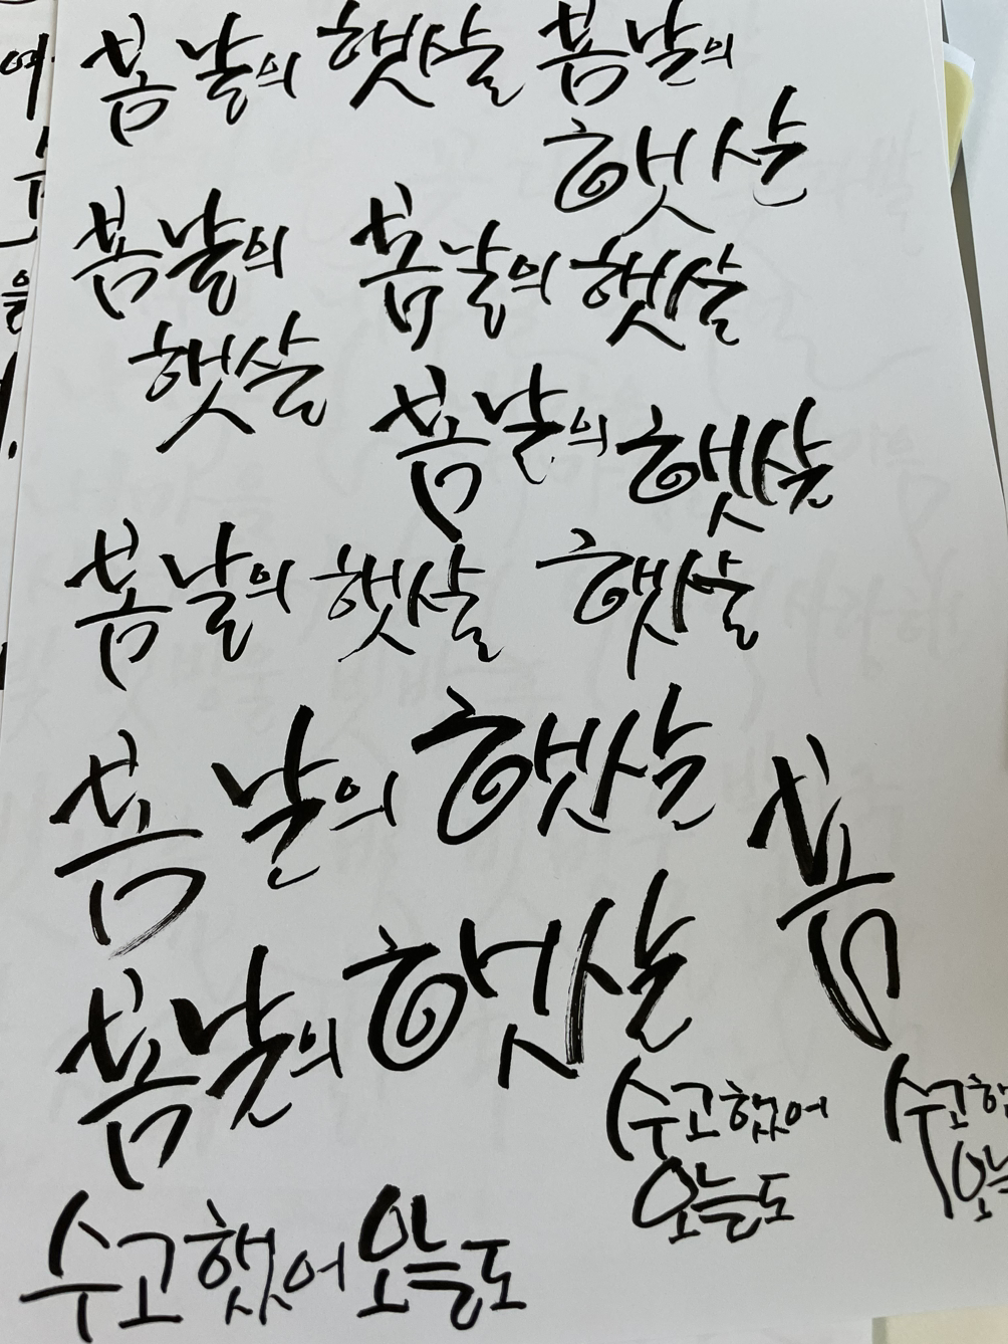 봄날의 햇살 봄날의
햇살
봄날의
햇살
봄날의 햇살
봄날의 햇살
봄날의 햇살 햇살
봄날의 햇살
봄
봄날의 햇살
수고했어
오늘도
수고했
오늘
수고했어 오늘도